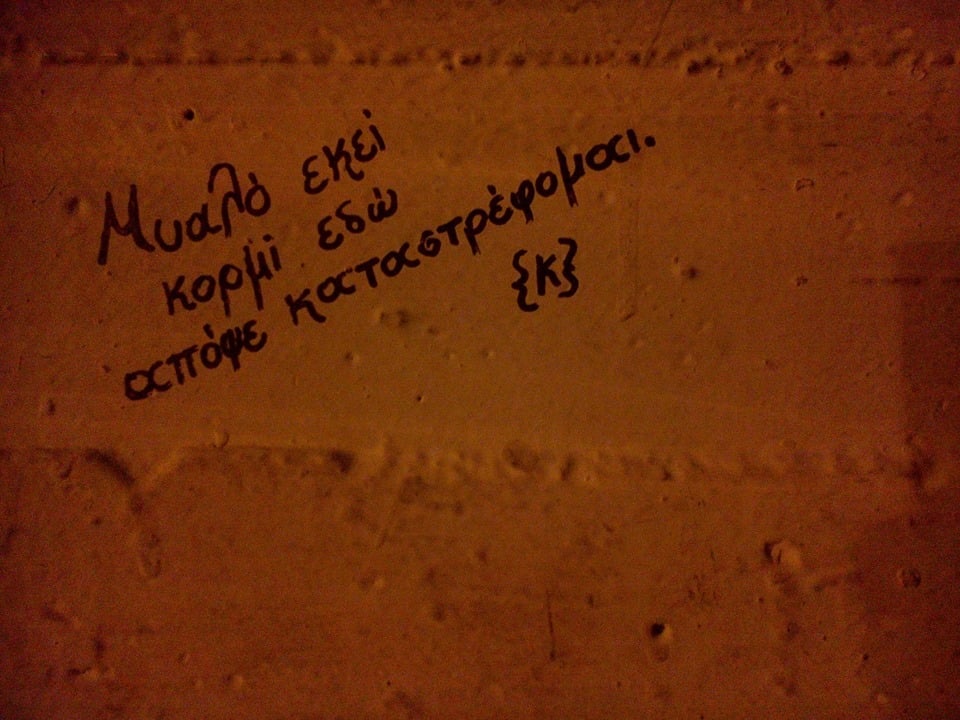 Μυαλό εκεί
κορμί εδώ
απόψε καταστρέφομαι.
{κ}